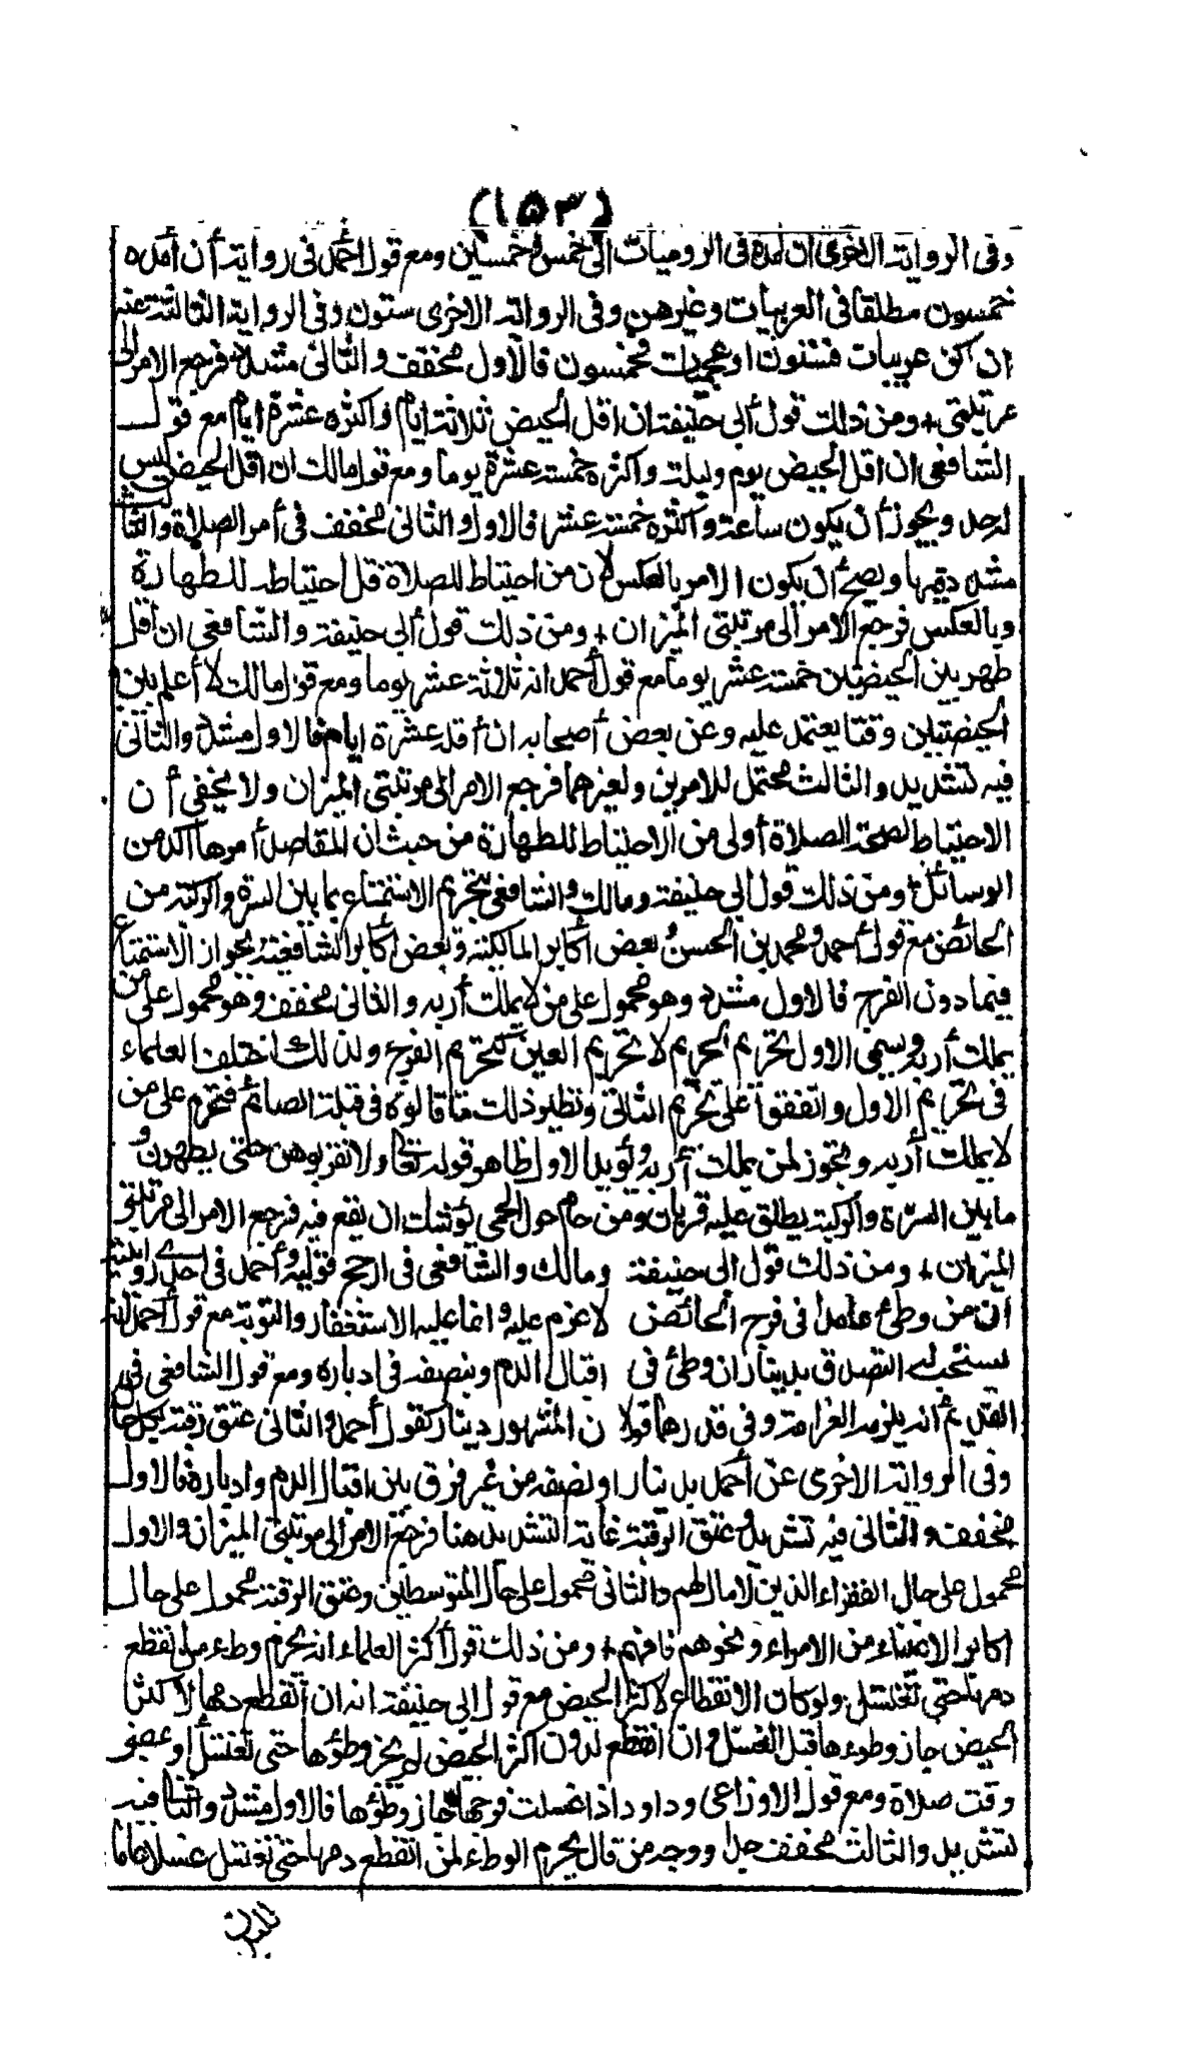 (١٥٣)
وفى الرواية الاخرى ان أمده فى الروميات الى خمس وخمسين ومع قول أحمد فى رواية أن أمده
خمسون مطلقا فى العربيات وغيرهن وفى الرواية الاخرى ستون وفى الرواية الثالثة عنه
ان كن عربيات فستون او عجميات فخمسون فالأول مخفف والثانى مشدد فرجع الامر الى
مرتبتى + ومن ذلك قول أبى حنيفة ان اقل الحيض ثلاثة ايام واكثره عشرة ايام مع قول
الشافعى ان اقل الحيض يوم وليلة واكثره خمسة عشرة يوما ومع قول مالك ان اقل الحيض ليس
له حد ويجوز أن يكون ساعة واكثره خمسة عشر فالاول والثانى مخفف فى أمر الصلاة والثالث
مشدد فيها ويصح أن يكون الامر بالعكس لان من احتياط للصلاة قل احتياطه للطهارة
وبالعكس فرجع الامر الى مرتبتى الميزان + ومن ذلك قول أبى حنيفة والشافعى ان اقل
طهر بين الحيضتين خمسة عشر يوما مع قول أحمد انه ثلاثة عشر يوما ومع قول مالك لا أعلم بين
الحيضتين وقتا يعتمد عليه وعن بعض أصحابه ان أقله عشرة ايام فالاول مشدد والثانى
فيه تشديد والثالث محتمل للامرين ولغيرهما فرجع الامر الى مرتبتى الميزان ولا يخفى أن
الاحتياط لصحة الصلاة أولى من الاحتياط للطهارة من حيث ان المقاصد أمرها آكد من
الوسائل ومن ذلك قول أبى حنيفة ومالك والشافعى بتحريم الاستمتاع بما بين السرة والركبة من
الحائض مع قول أحمد ومحمد بن الحسن وبعض أكابر المالكية وبعض أكابر الشافعية بجواز الاستمتاع
فيما دون الفرج فالاول مشدد وهو محمول على من لا يملك أربه والثانى مخفف وهو محمول على من
يملك أربه ويسمى الاول تحريم الحريم لا تحريم العين كتحريم الفرج ولذلك اختلف العلماء
فى تحريم الاول واتفقوا على تحريم الثانى ونظير ذلك ما قالوه فى قبلة الصائم فتحرم على من
لا يملك أربه وتجوز لمن يملك أربه ويؤيد الاول ظاهر قوله تعالى ولا تقربوهن حتى يطهرن و
ما بين السرة والركبة يطلق عليه قربان ومن حام حول الحمى يوشك ان يقع فيه فرجع الامر الى مرتبتى
الميزان + ومن ذلك قول ابى حنيفة ومالك والشافعى فى ارجح قوليه وأحمد فى احدى روايتيه
أن من وطئ عامدا فى فرج الحائض لا غرم عليه وانما عليه الاستغفار والتوبة مع قول أحمد انه
يستحب له التصدق بدينار ان وطئ فى اقبال الدم وبنصفه فى ادباره ومع قول الشافعى فى
القديم أنه يلزمه الغرامة وفى قدرها قولان المشهور دينار كقول أحمد والثانى عتق رقبة بكل حال
وفى الرواية الاخرى عن أحمد بدينار او نصفه من غير فرق بين اقبال الدم وادباره فالاول
مخفف والثانى فيه تشديد وعتق الرقبة غاية التشديد هنا فرجع الامر الى مرتبتى الميزان والاول
محمول على حال الفقراء الذين لا مال لهم والثانى محمول على حال المتوسطين وعتق الرقبة محمول على حال
اكابر الاغنياء من الامراء ونحوهم فافهم + ومن ذلك قول أكثر العلماء انه يحرم وطء من انقطع
دمها حتى تغتسل ولو كان الانقطاع لاكثر الحيض مع قول ابى حنيفة انه ان انقطع دمها لاكثر
الحيض جاز وطوءها قبل الغسل وان انقطع لدون اكثر الحيض لم يجز وطؤها حتى تغتسل أو يمضى
وقت صلاة ومع قول الاوزاعى وداود اذا غسلت فرجها جاز وطؤها فالاول مشدد والثانى فيه
تشديد والثالث مخفف جدا ووجه من قال يحرم الوطء لمن انقطع دمها حتى تغتسل غسلا كاملا